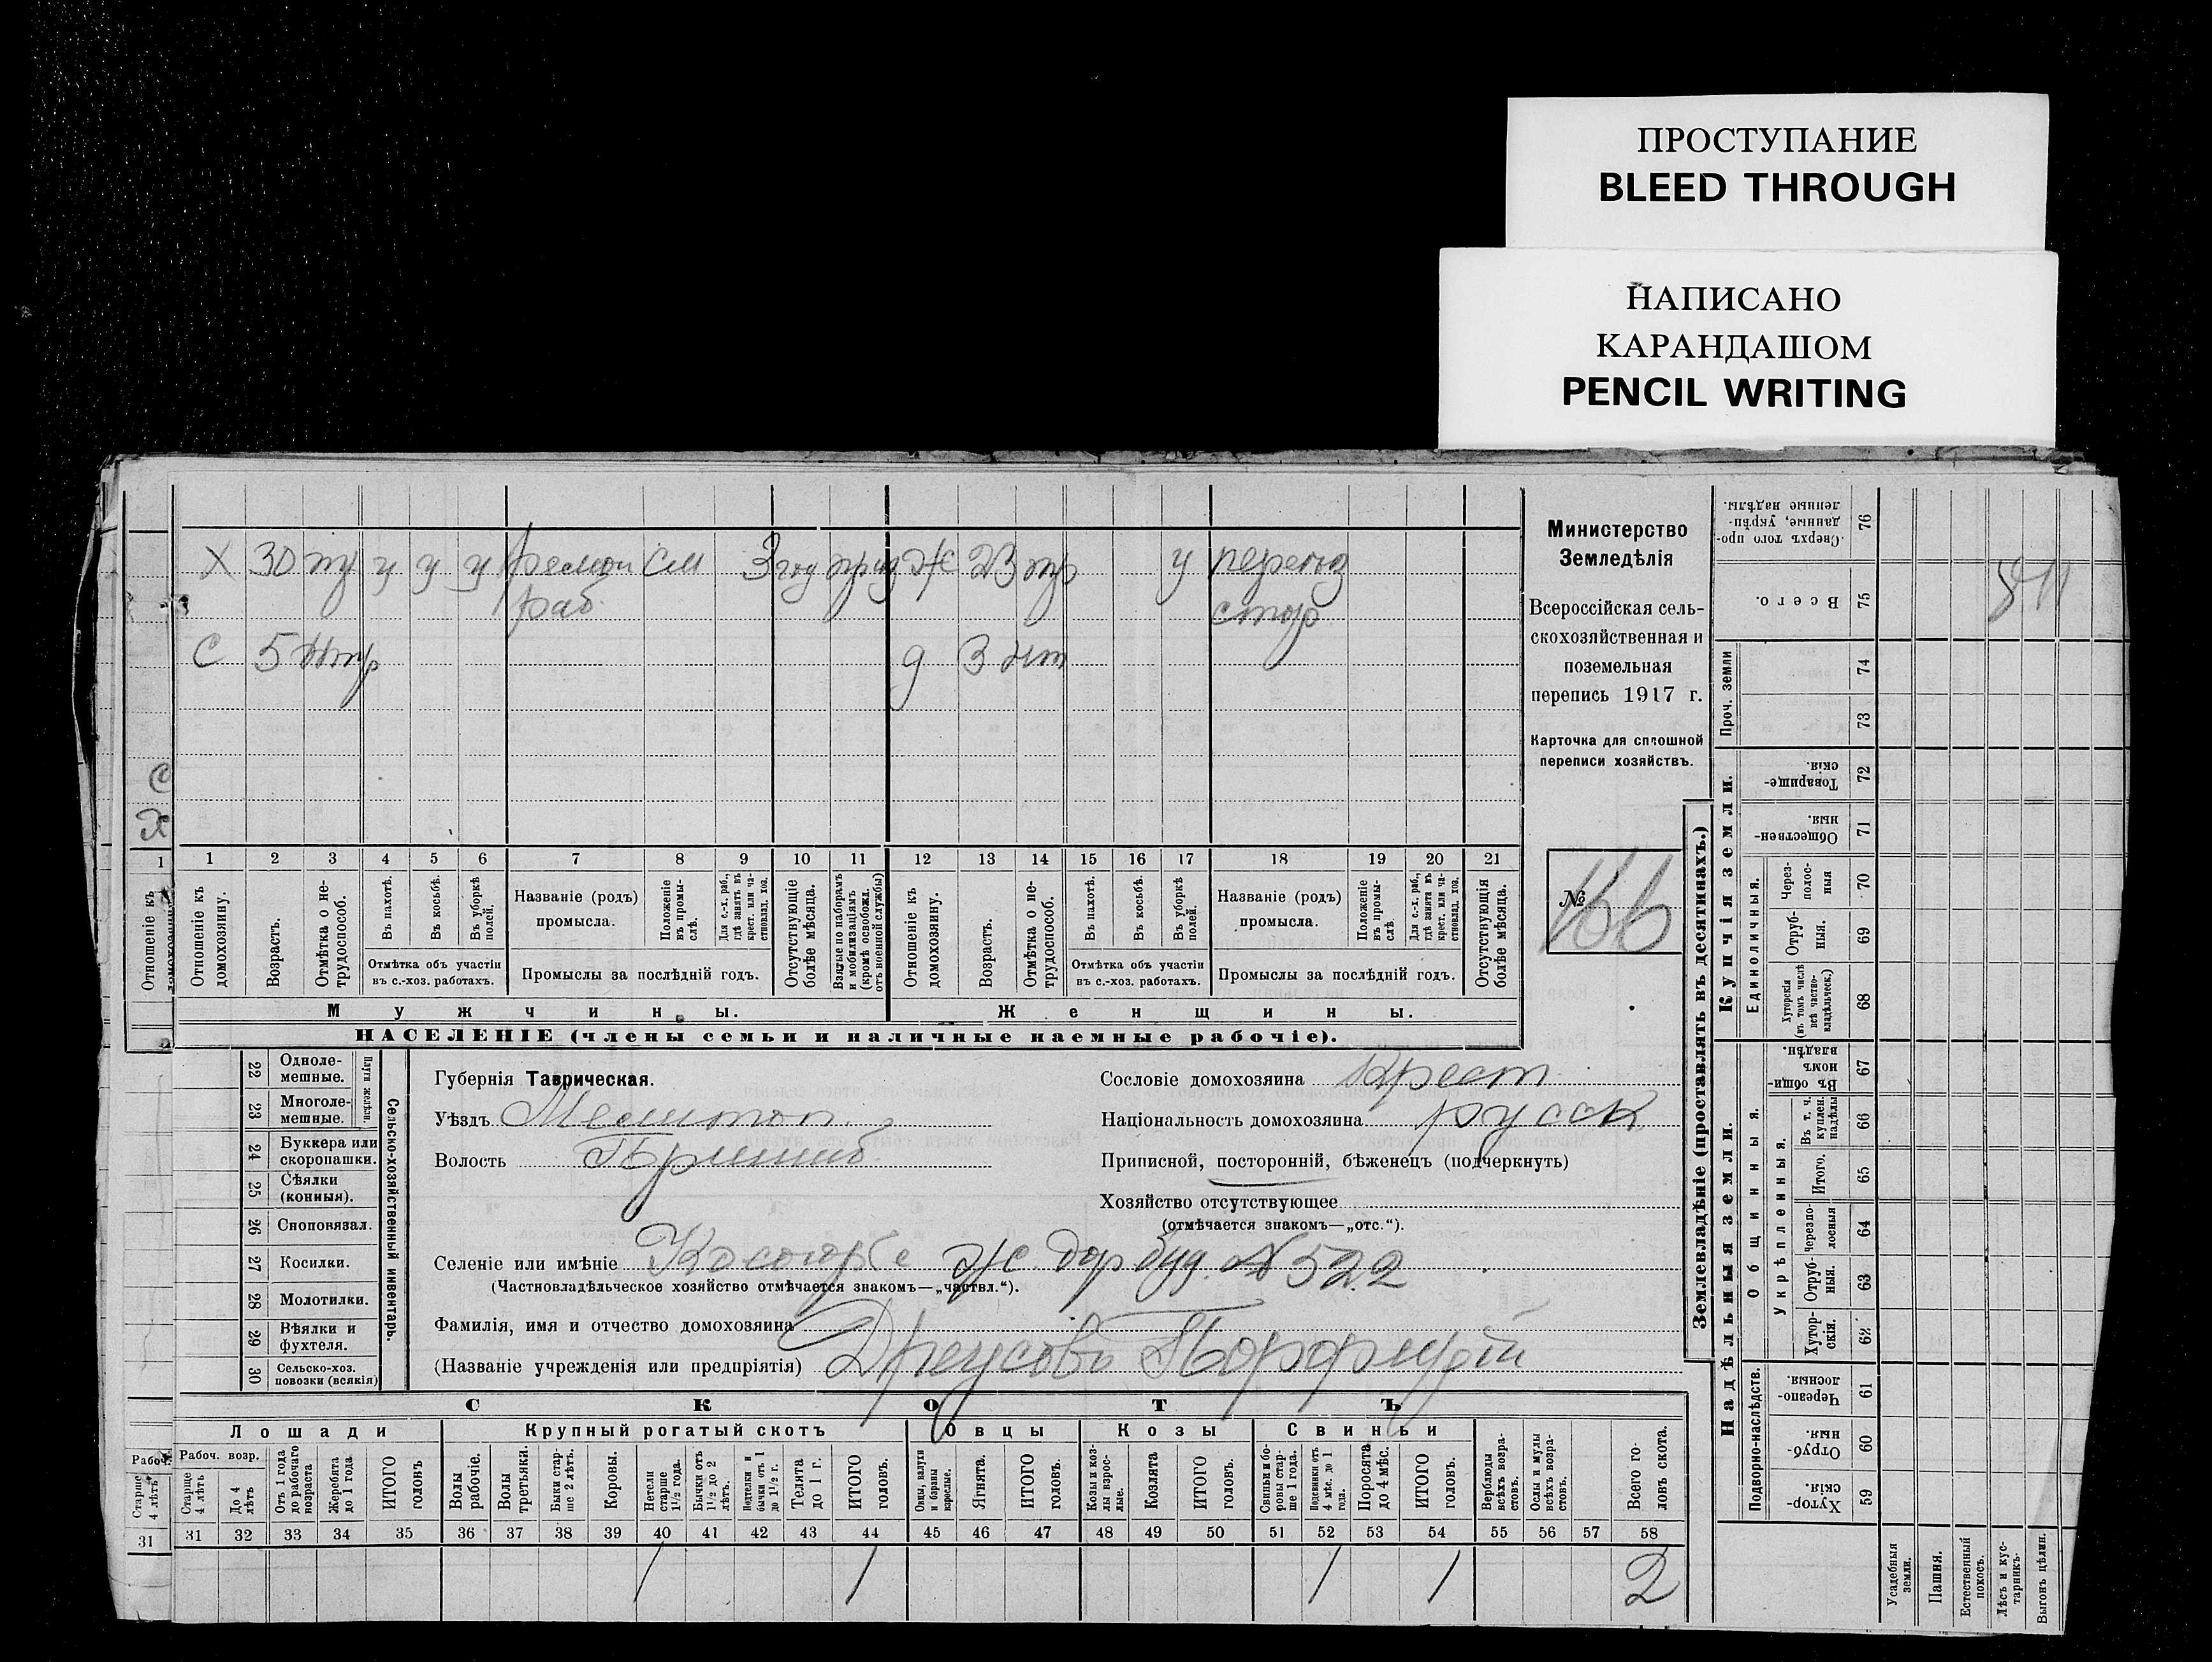 ПРОСТУПАНИЕ
BLEED THROUGH
НАПИСАНО
КАРАНДАШОМ
PENCIL WRITING
Х 30 у у у см 3 год ж 23 тр у
раб
С 5 д 3
С
1 1 2 3 4 5 6 7 8 9 10 11 12 13 14 15 16 17 18 19 20 21
Отношеніе къ домохозяину.
Возрастъ.
Отмѣтка о нетрудоспособ.
Въ пахотѣ.
Въ косьбѣ.
Въ уборкѣ полей.
Отмѣтка объ участіи
въ с.-хоз. работахъ.
Названіе (родъ)
промысла.
Положеніе въ промыслѣ.
Для с.-х. раб., гдѣ занятъ въ крест. или частновлад. хоз.
Промыслы за послѣдній годъ.
Отсутствующіе болѣе мѣсяца.
Взятые по наборамъ и мобилизаціямъ (кромѣ освобожд. отъ военной службы)
Отношеніе къ домохозяину.
Возрастъ.
Отмѣтка о нетрудоспособ.
Въ пахотѣ.
Въ косьбѣ.
Въ уборкѣ полей.
Отмѣтка объ участіи
въ с.-хоз. работахъ.
Названіе (родъ)
промысла.
Положеніе въ промыслѣ
Для с.-х. раб., гдѣ занята въ крест. или частновлад. хоз.
Промыслы за послѣдній годъ.
Отсутствующія болѣе мѣсяца.
Мужчины. Женщины.
НАСЕЛЕНІЕ (члены семьи и наличные наемные рабочіе).
Министерство
Земледѣлія
Всероссійская сель-
скохозяйственная и
поземельная
перепись 1917 г.
Карточка для сплошной
переписи хозяйствъ.
№ 166
22 Однолемешные.
23 Многолемешные.
Плуги желѣзн.
24 Буккера или скоропашки.
25 Сѣялки (конныя).
26 Сноповязал.
27 Косилки.
28 Молотилки.
29 Вѣялки и фухтеля.
30 Сельско-хоз. повозки (всякія)
Сельско-хозяйственный инвентарь.
Губернія Таврическая.
Уѣздъ Мелитоп.
Волость Пришиб
Сословіе домохозяина Крест
Національность домохозяина русск
Приписной, посторонній, бѣженецъ (подчеркнуть)
Хозяйство отсутствующее
(отмѣчается знакомъ—„отс.“).
Селеніе или имѣніе ж. дор буд. № 522
(Частновладѣльческое хозяйство отмѣчается знакомъ—„частвл.“).
Фамилія, имя и отчество домохозяина
(Названіе учрежденія или предпріятія)
СКОТЪ
Лошади Крупный рогатый скотъ Овцы Козы Свиньи
Рабоч. Рабоч. возр.
Старше 4 лѣтъ
Старше 4 лѣтъ
До 4 лѣтъ
Отъ 1 года до рабочаго возраста
Жеребята до 1 года.
ИТОГО головъ
Волы рабочіе.
Волы третьяки.
Быки старше 2 лѣтъ.
Коровы.
Нетели старше 1½ года.
Бычки отъ 1½ до 2 лѣтъ.
Подтелки и бычки отъ 1 до 1½ г.
Телята до 1 г.
ИТОГО головъ.
Овцы, валухи и бараны взрослые.
Ягнята.
ИТОГО головъ.
Козы и козлы взрослые.
Козлята
ИТОГО головъ.
Свиньи и боровы старше 1 года.
Подсвинки отъ 4 мѣс. до 1 года.
Поросята до 4 мѣс.
ИТОГО головъ.
Верблюды всѣхъ возрастовъ.
Ослы и мулы всѣхъ возрастовъ.
Всего головъ скота.
31 31 32 33 34 35 36 37 38 39 40 41 42 43 44 45 46 47 48 49 50 51 52 53 54 55 56 57 58
1 1 1 1 2
Землевладѣніе (проставлять въ десятинахъ.)
Надѣльныя земли. Купчія земли. Проч. земли
Подворно-наслѣдств. Общинныя. Укрѣпленныя. Единоличныя.
Хуторскія. 59
Отрубныя. 60
Черезполосныя. 61
Хуторскія. 62
Отрубныя. 63
Черезполосныя 64
Итого. 65
Въ т. ч. куплен. надѣлы 66
Въ общинномъ владѣн. 67
Хуторскія (въ томъ числѣ всѣ частновладѣльческ.) 68
Отрубныя. 69
Черезполосныя 70
Общественныя. 71
Товарищескія. 72
73
74
Всего. 75
Сверхъ того проданные, укрѣпленные надѣлы. 76
Усадебныя земли.
Пашня.
Естественный покосъ.
Лѣсъ и кустарникъ.
Выгонъ цѣлин.